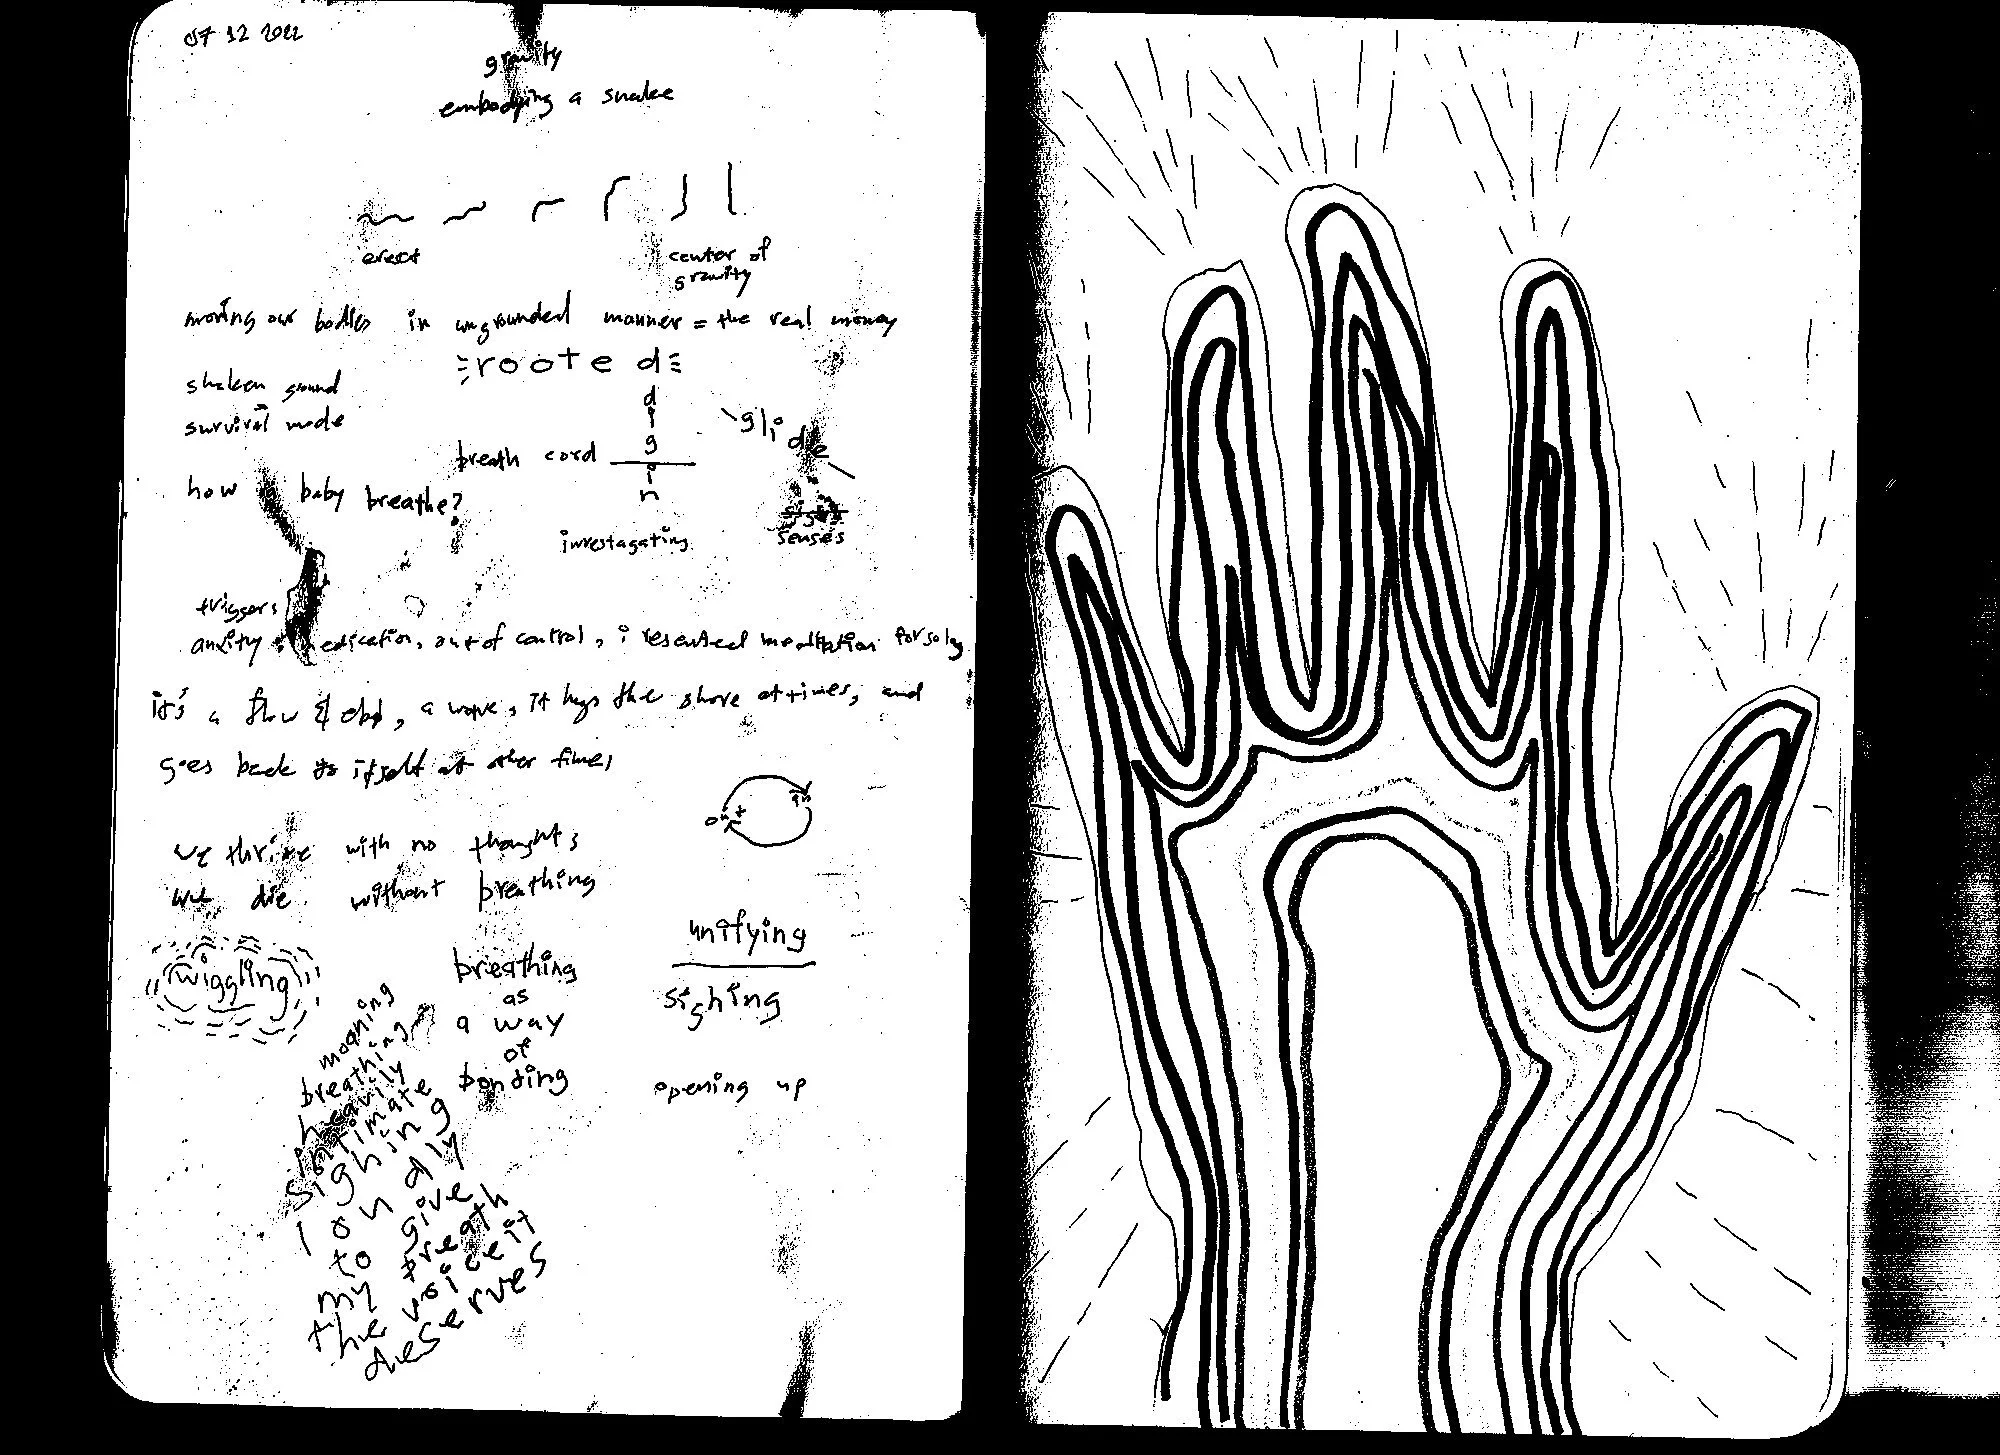 07 12 2022
gravity
embodying a snake
erect
center of
gravity
moving our bodies in ungrounded manner = the real money
rooted
dig in
shaken ground
survival mode
glide
breath cord
how baby breathe?
investagating
senses
triggers
anxity medication, out of control, i resented meditation for so long
it's a flow & ebb, a wave, it hugs the shore at times, and
goes back to itself at other times
in
out
we thrive with no thoughts
we die without breathing
wiggling
breathing
as
a way
of
bonding
unifying
sighing
opening up
moaning
breathing
heavily
intimate
sighing
loudly
to give
my breath
the voice it
deserves